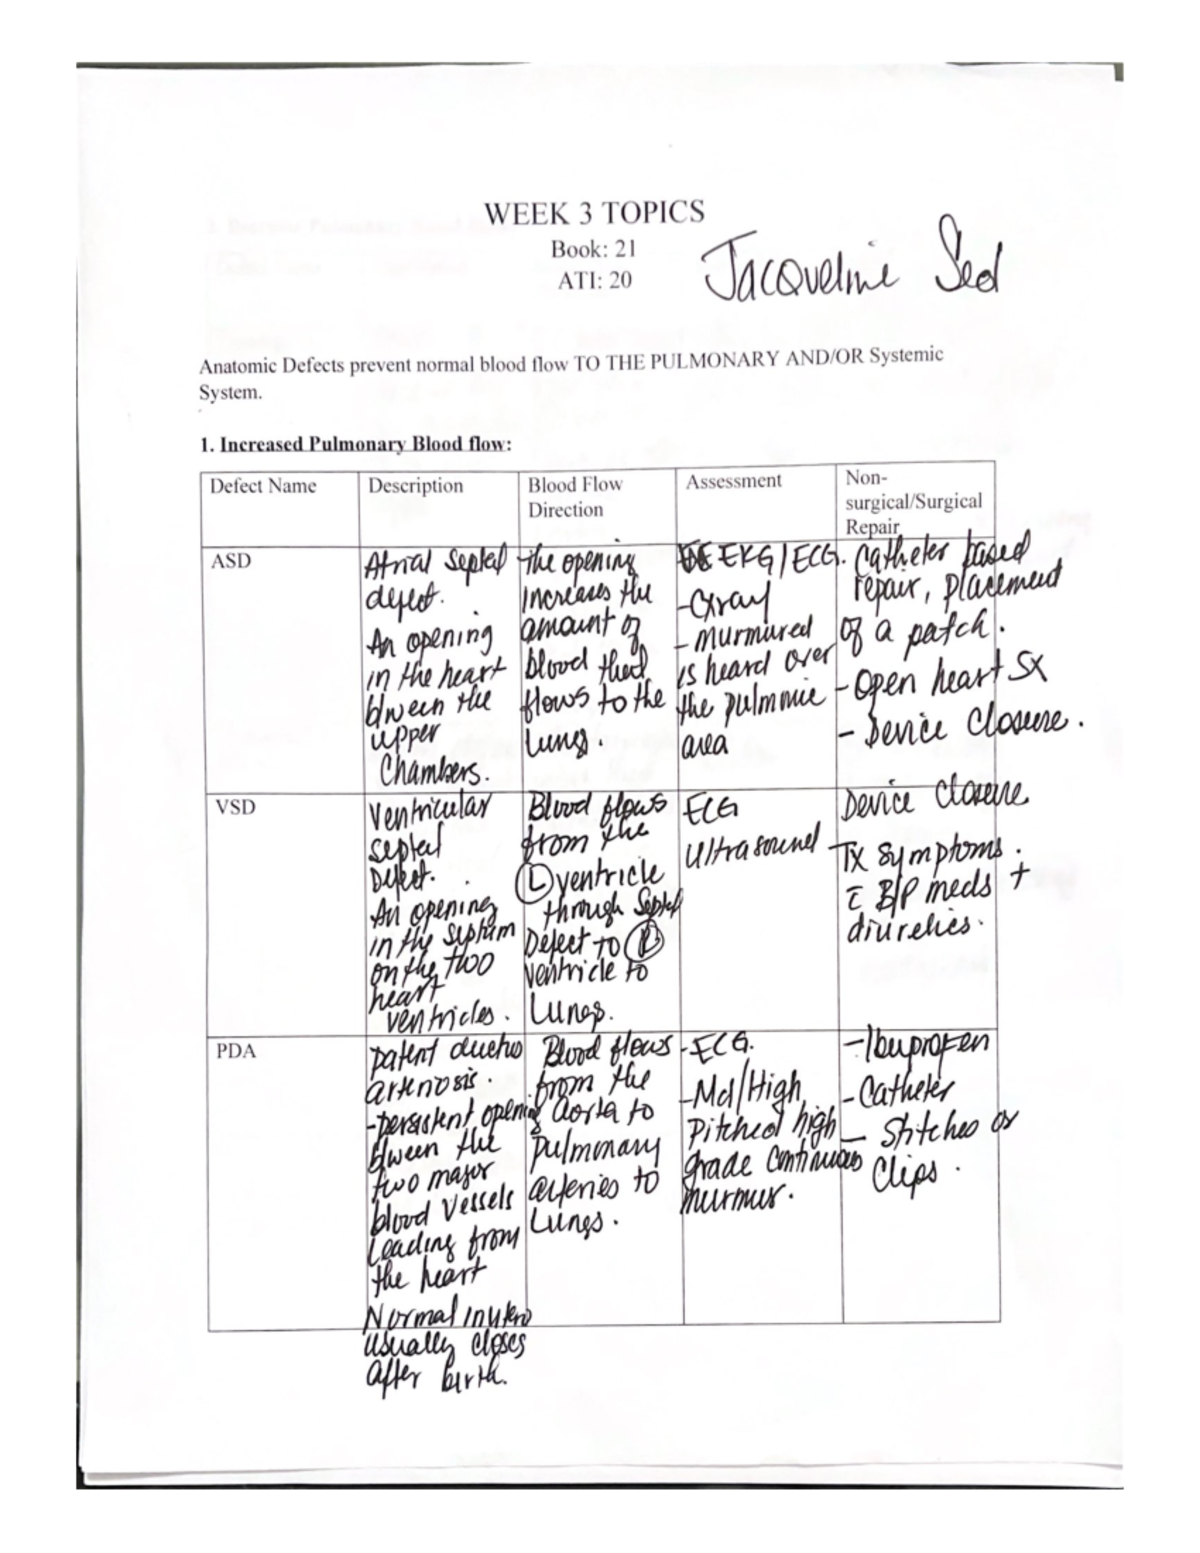 WEEK 3 TOPICS
Book: 21
ATI: 20
Jacqueline Sed
Anatomic Defects prevent normal blood flow TO THE PULMONARY AND/OR Systemic
System.
1. Increased Pulmonary Blood flow:
Defect Name
Description
Blood Flow
Direction
Assessment
Non-
surgical/Surgical
Repair
ASD
Atrial Septal
defect.
An opening
in the heart
btween the
upper
Chambers.
the opening
increases the
amount of
blood that
flows to the
lungs.
EKG/ECG.
-Xray
-murmured
is heard over
the pulmonic
area
Catheter based
repair, placement
of a patch.
-Open heart SX
- Device Closure.
VSD
Ventricular
septal
Defect.
An opening
in the septum
on the two
heart
ventricles.
Blood flows
from the
(L) ventricle
through Septal
Defect to (R)
ventricle to
Lungs.
ECG
Ultrasound
Device Closure
Tx Symptoms.
c̄ B/P meds +
diuretics.
PDA
patent ductus
-persistent opening
btween the
two major
blood Vessels
Leading from
the heart
Normal in utero
usually closes
after birth.
Blood flows
from the
aorta to
pulmonary
arteries to
Lungs.
-ECG.
-Md/High
Pitched high
grade continuous
murmur.
-Ibuprofen
-Catheter
- Stitches or
Clips.